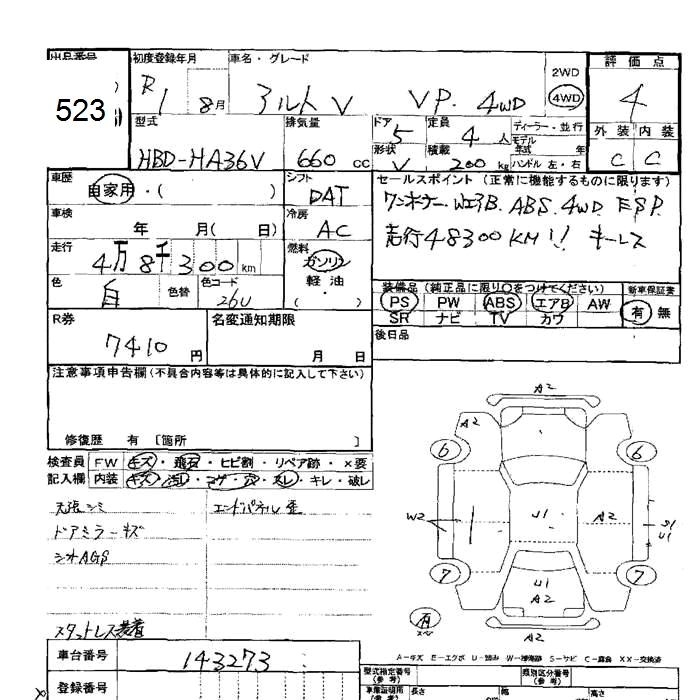 出品番号 初度登録年月 車名・グレード 評価点
523 R1 8月 アルトV VP. 4WD 2WD 4WD 4
型式 排気量 ドア 5 定員 4人 ディーラー・並行 外装 内装
HBD-HA36V 660cc 形状 V 積載 200kg モデル年式 年 ハンドル 左・右 C C
車歴 シフト セールスポイント(正常に機能するものに限ります)
自家用・( ) DAT ワンオーナー. WエアB. ABS. 4WD. ESP.
車検 年 月( 日) 冷房 AC 走行48300KM!! キーレス
走行 4万8千300km 燃料 ガソリン 軽油・( )
色 白 色替 色コード 26U 装備品(純正品に限り○をつけてください) 新車保証書
PS PW ABS エアB AW 有 無
SR ナビ TV カワ
R券 名変通知期限 後日品
7410円 月 日
注意事項申告欄(不具合内容等は具体的に記入して下さい)
修復歴 有 [箇所 ]
検査員 FW キズ・飛石・ヒビ割・リペア跡・×要
記入欄 内装 キズ・汚レ・コゲ・穴・スレ・キレ・破レ
天張シミ エンドパネル歪
ドアミラーキズ
シオAGS
スタットレス装着
A2
A2
6 6
W2 U1 A2 U1
7 7
U1
A2
有
A2
A-キズ E-エクボ U-凹み W-補修跡 S-サビ C-腐食 XX-交換済
車台番号 143273 型式指定番号(参考) 類別区分番号(参考)
登録番号 長さ cm 幅 高さ